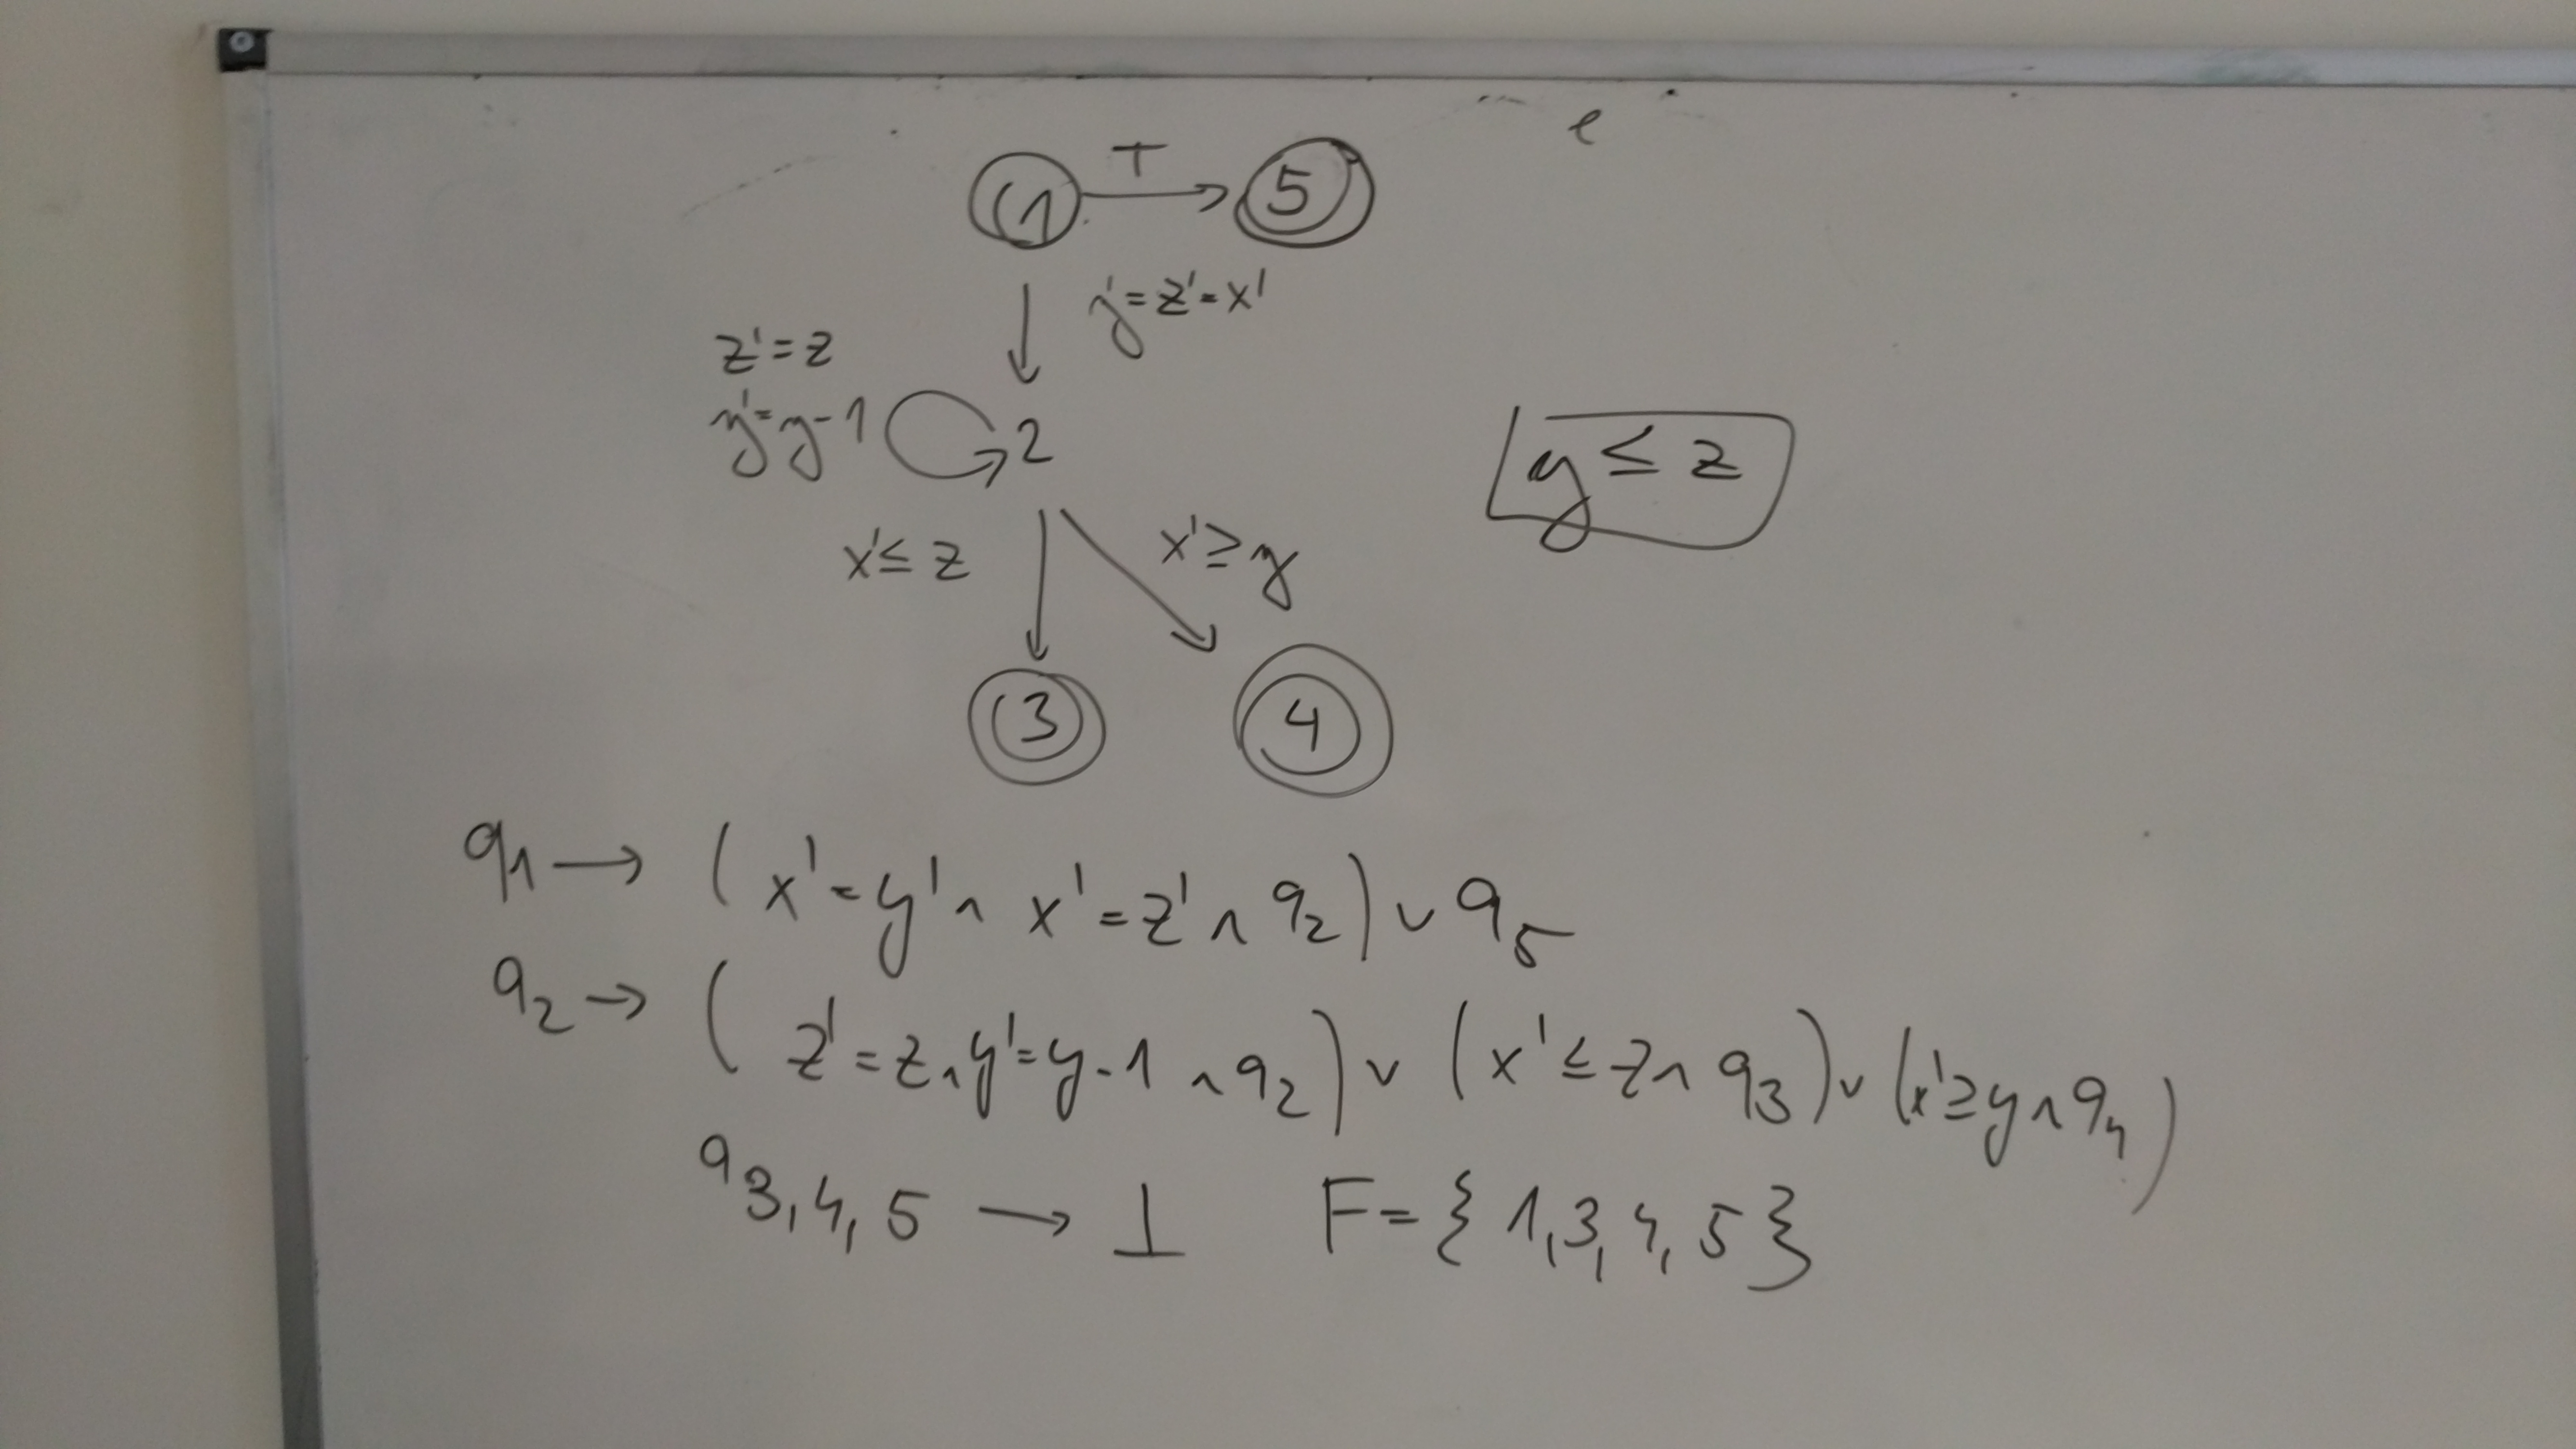 e
1 T 5
y' = z' = x'
z' = z
y' = y - 1 2
y ≤ z
x' ≤ z x' ≥ y
3 4
q1 → ( x' = y' ∧ x' = z' ∧ q2 ) ∨ q5
q2 → ( z' = z ∧ y' = y - 1 ∧ q2 ) ∨ ( x' ≤ z ∧ q3 ) ∨ ( x' ≥ y ∧ q4 )
q3, 4, 5 → ⊥ F = { 1, 3, 4, 5 }